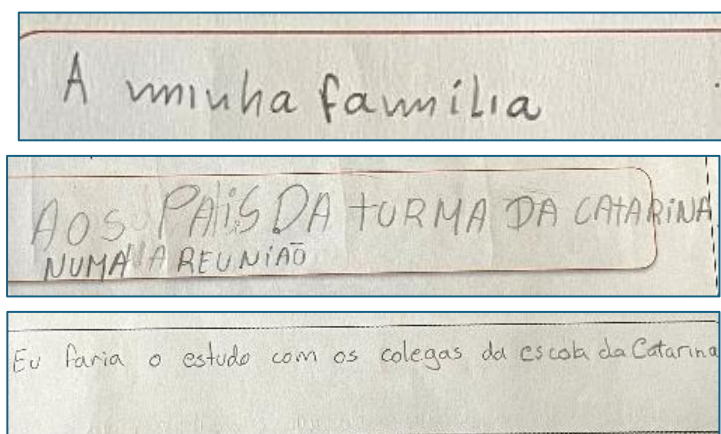 A minha família
AOS PAIS DA TURMA DA CATARINA
NUMA A REUNIÃO
Eu faria o estudo com os colegas da escola da Catarina